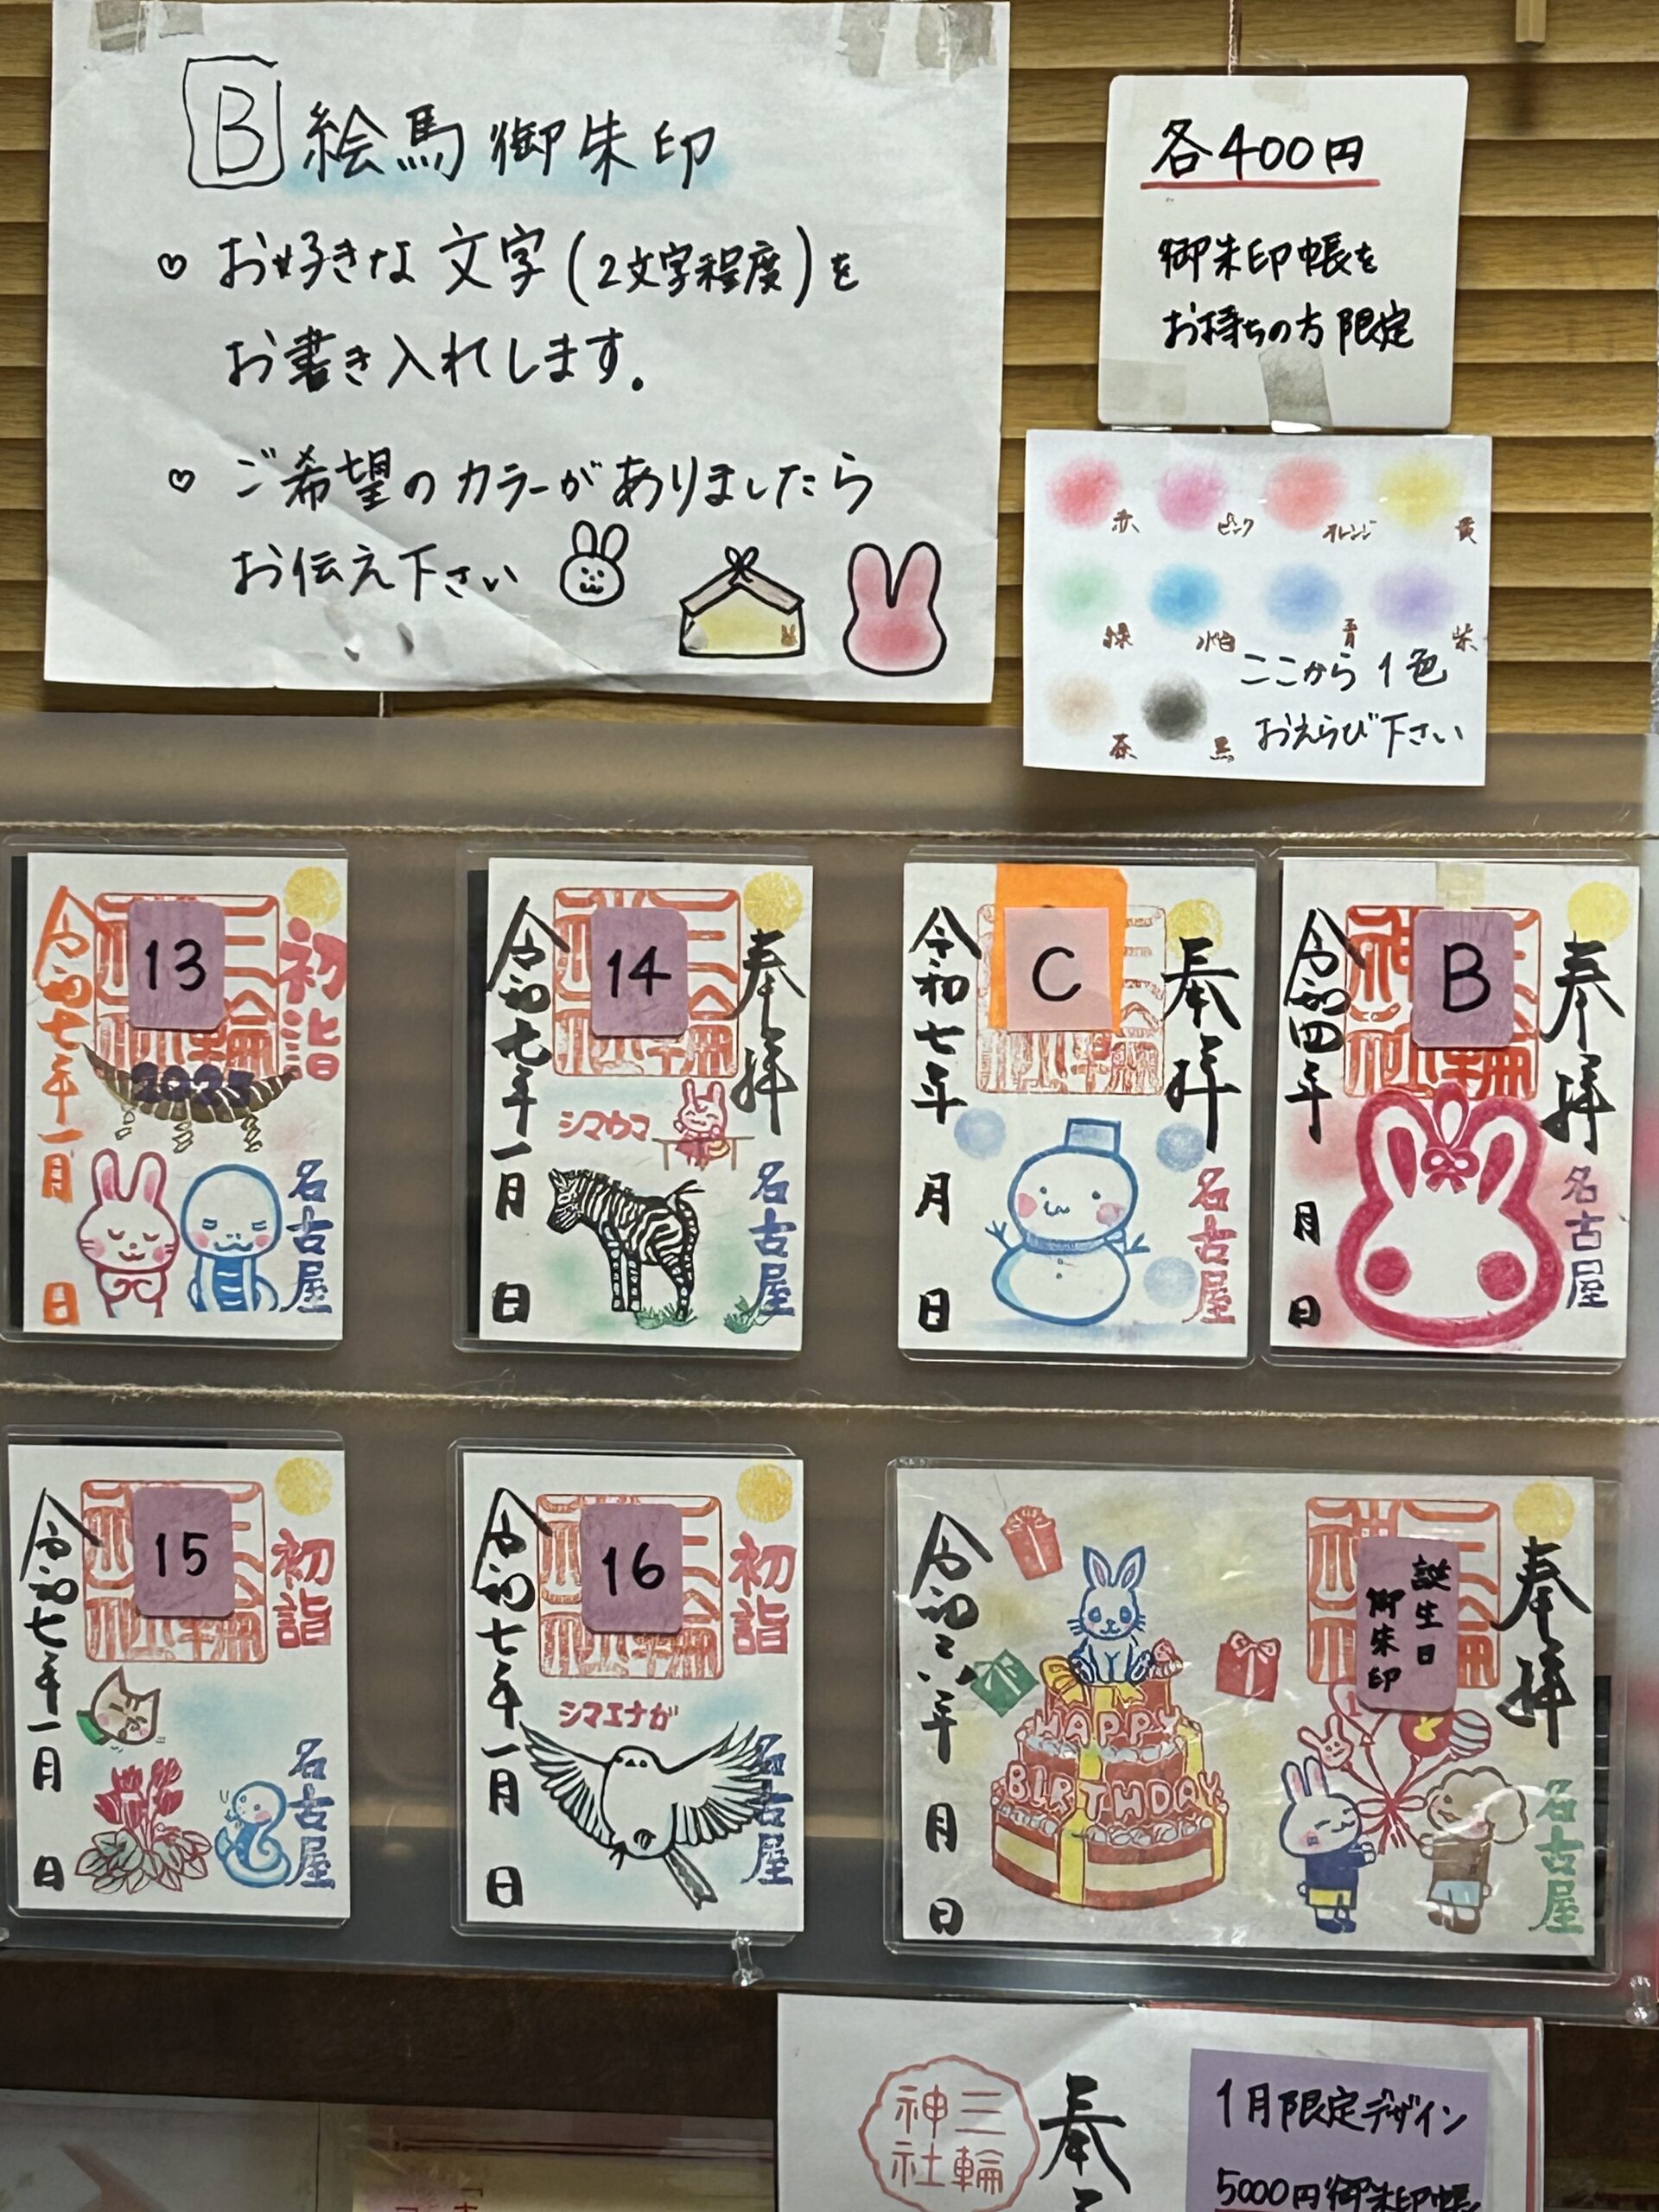 B 絵馬御朱印
♡ お好きな文字(2文字程度)を
お書き入れします。
♡ ご希望のカラーがありましたら
お伝え下さい
各400円
御朱印帳を
お持ちの方限定
赤 ピンク オレンジ 黄
緑 水色 青 紫
茶 黒
ここから1色
おえらび下さい
13
初詣
2025
令和七年一月 日
名古屋
14
奉拝
シマウマ
令和七年一月 日
名古屋
C
奉拝
令和七年 月 日
名古屋
B
奉拝
令和四年 月 日
名古屋
15
初詣
令和七年一月 日
名古屋
16
初詣
シマエナガ
令和七年一月 日
名古屋
誕生日
御朱印
奉拝
HAPPY
BIRTHDAY
令和六年 月 日
名古屋
三輪
神社
奉
1月限定デザイン
5000円御朱印帳